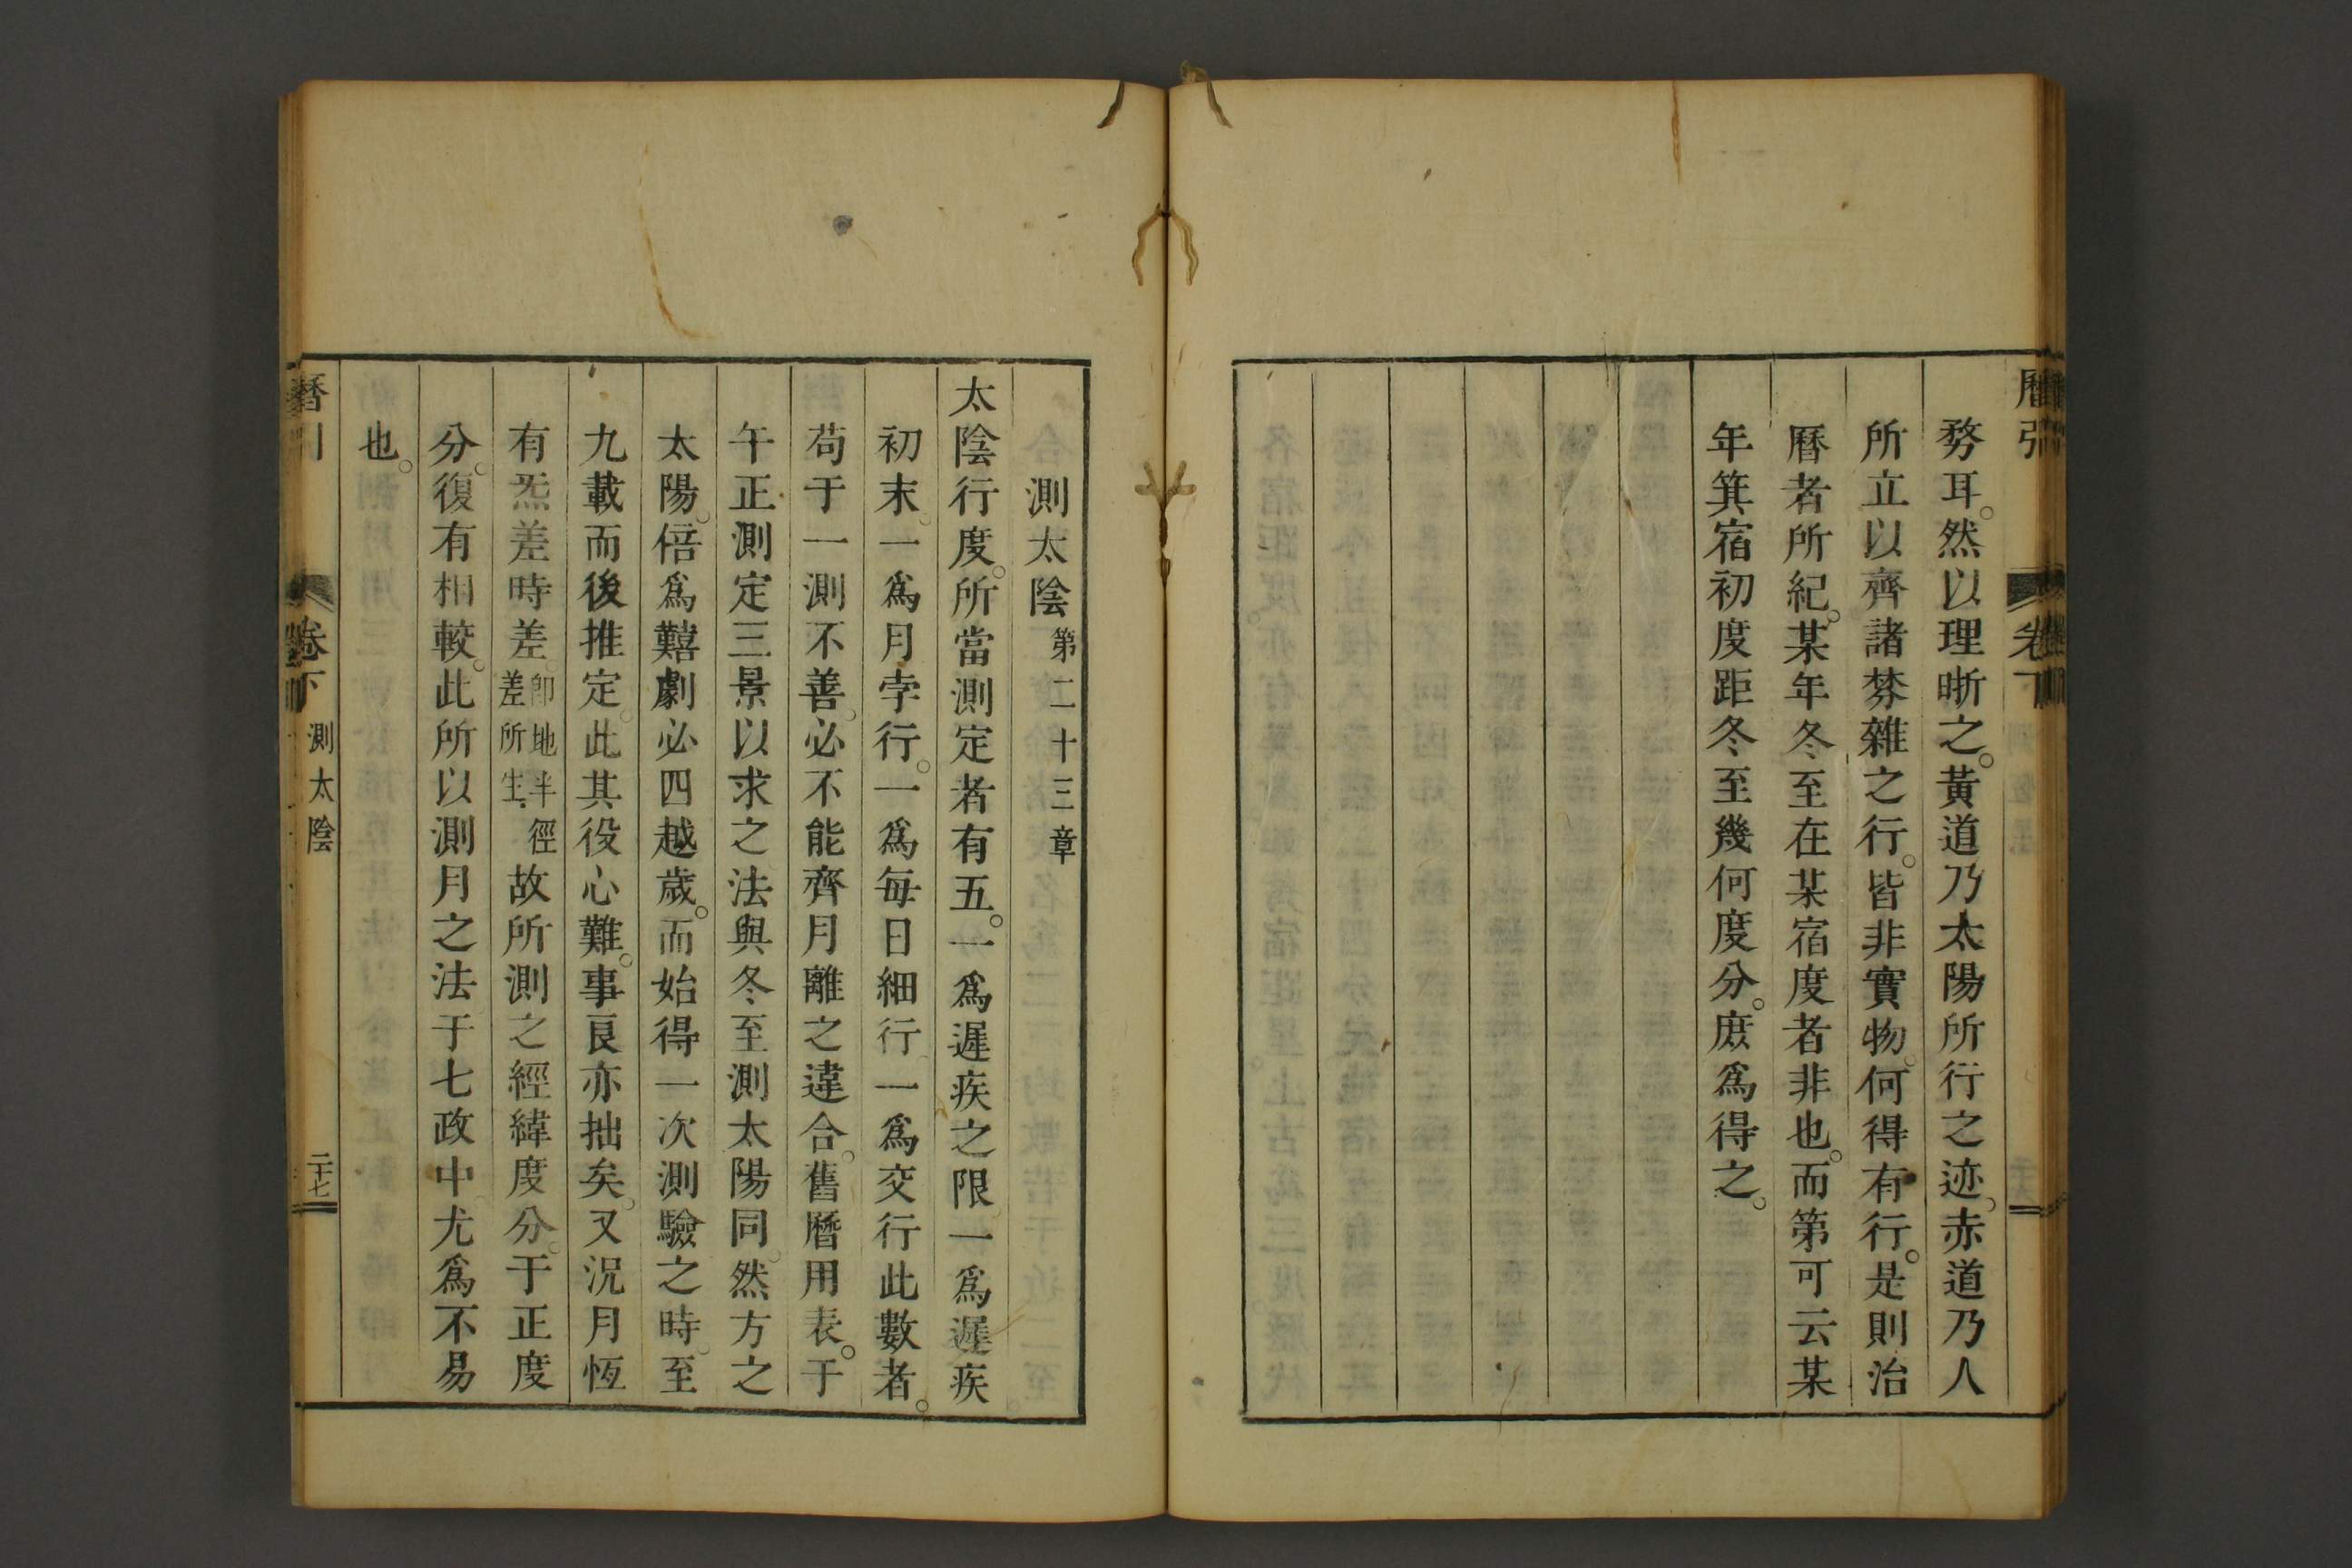 曆引
卷下
務耳。然以理晰之。黃道乃太陽所行之迹。赤道乃人
所立以齊諸棼雜之行。皆非實物。何得有行。是則治
曆者所紀。某年冬至在某宿度者非也。而第可云某
年箕宿初度距冬至幾何度分。庶爲得之。
測太陰第二十三章
太陰行度。所當測定者有五。一爲遲疾之限。一爲遲疾
初末。一爲月孛行。一爲每日細行。一爲交行。此數者。
苟于一測不善。必不能齊月離之違合。舊曆用表。于
午正測定三景以求之法與冬至測太陽同。然方之
太陽。倍爲囏劇必四越歲。而始得一次測驗之時。至
九載而後推定。此其役心難。事良亦拙矣。又況月恆
有炁差時差。卽地半徑差所生。故所測之經緯度分。于正度
分。復有相較。此所以測月之法于七政中。尤爲不易
也。
曆引
卷下
測太陰
二十七